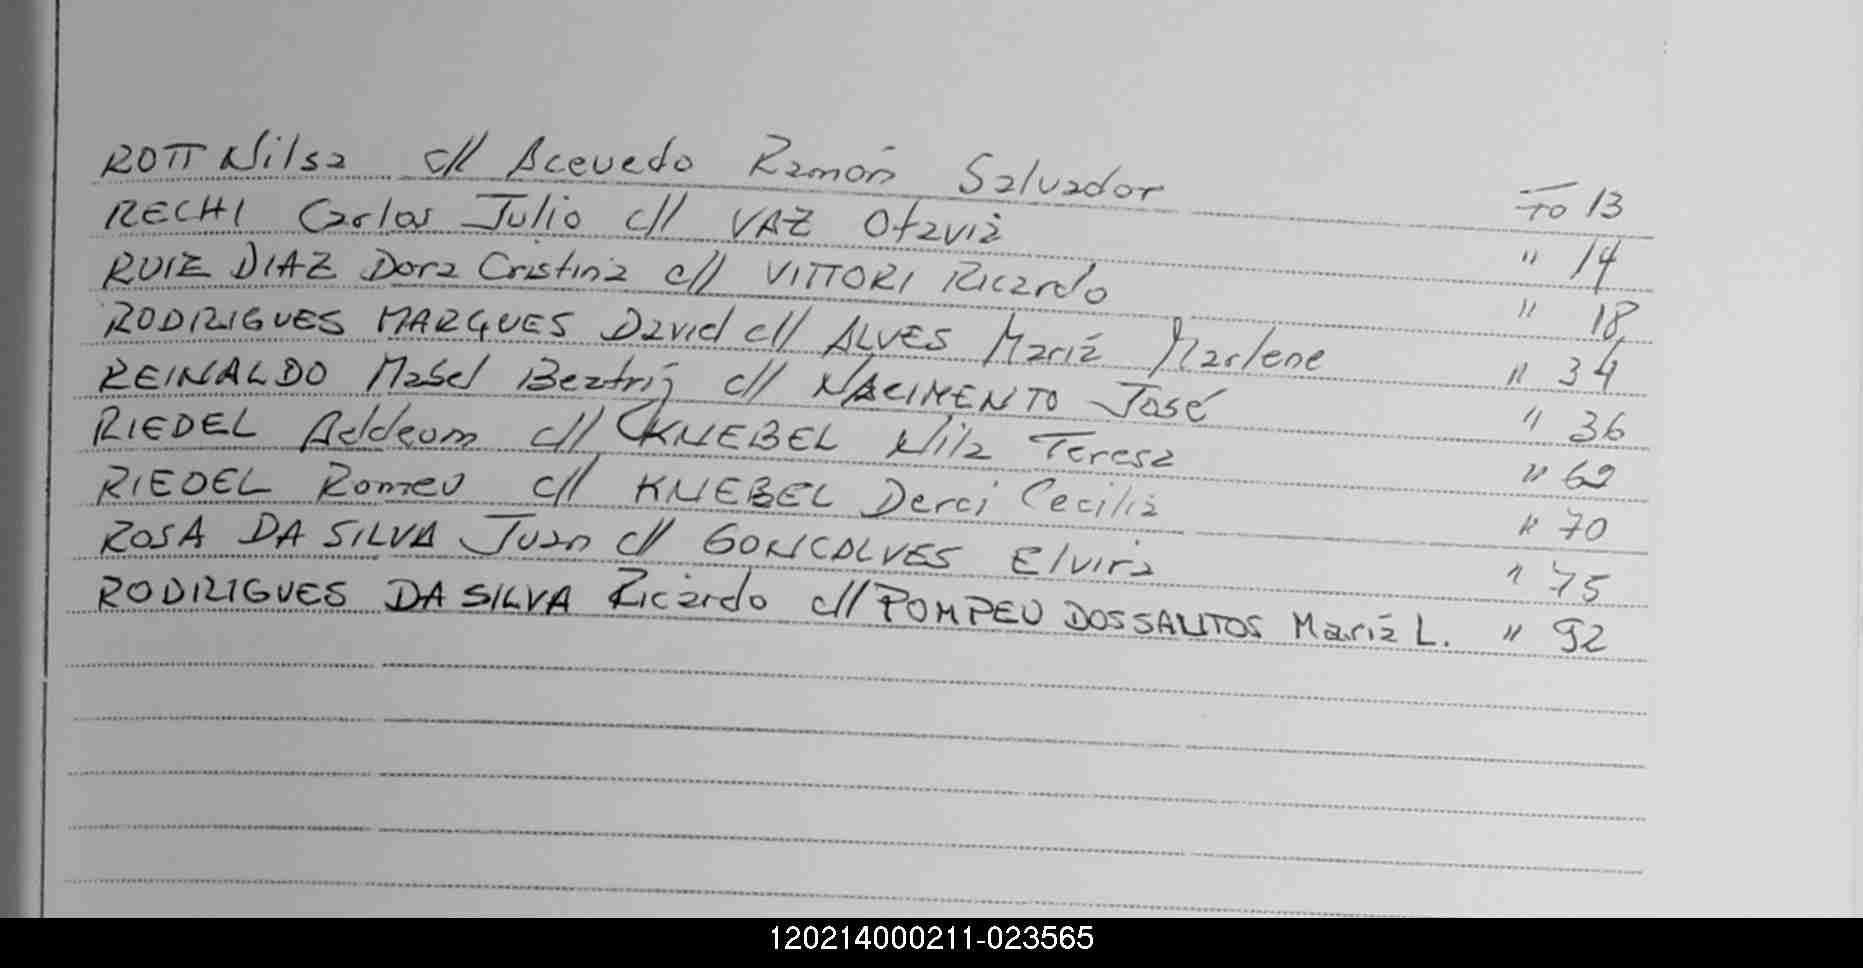 ROTT Nilsa c// Acevedo Ramón Salvador Fo 13
RECHI Carlos Julio c// VAZ Otavia " 14
RUIZ DIAZ Dora Cristina c// VITTORI Ricardo " 18
RODRIGUES MARQUES David c// ALVES María Marlene " 34
REINALDO Mabel Beatriz c// NACIMENTO José " 36
RIEDEL c// KNEBEL Nila Teresa " 69
RIEDEL Romeu c// KNEBEL Derci Cecilia " 70
ROSA DA SILVA Juan c// GONCALVES Elvira " 75
RODRIGUES DA SILVA Ricardo c// POMPEU DOSSANTOS María L. " 92
120214000211-023565